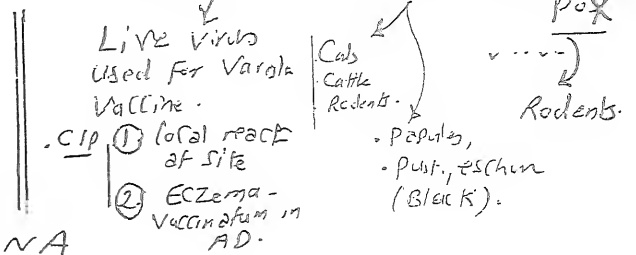 Pox
Live virus
used for Variola
Vaccine.
. C/P ① local react
at site
② ECZema-
Vaccinatum in
AD.
. Cats
. Cattle
Rodents.
. Papules,
. Pust., eschar
(Black).
Rodents.
NA